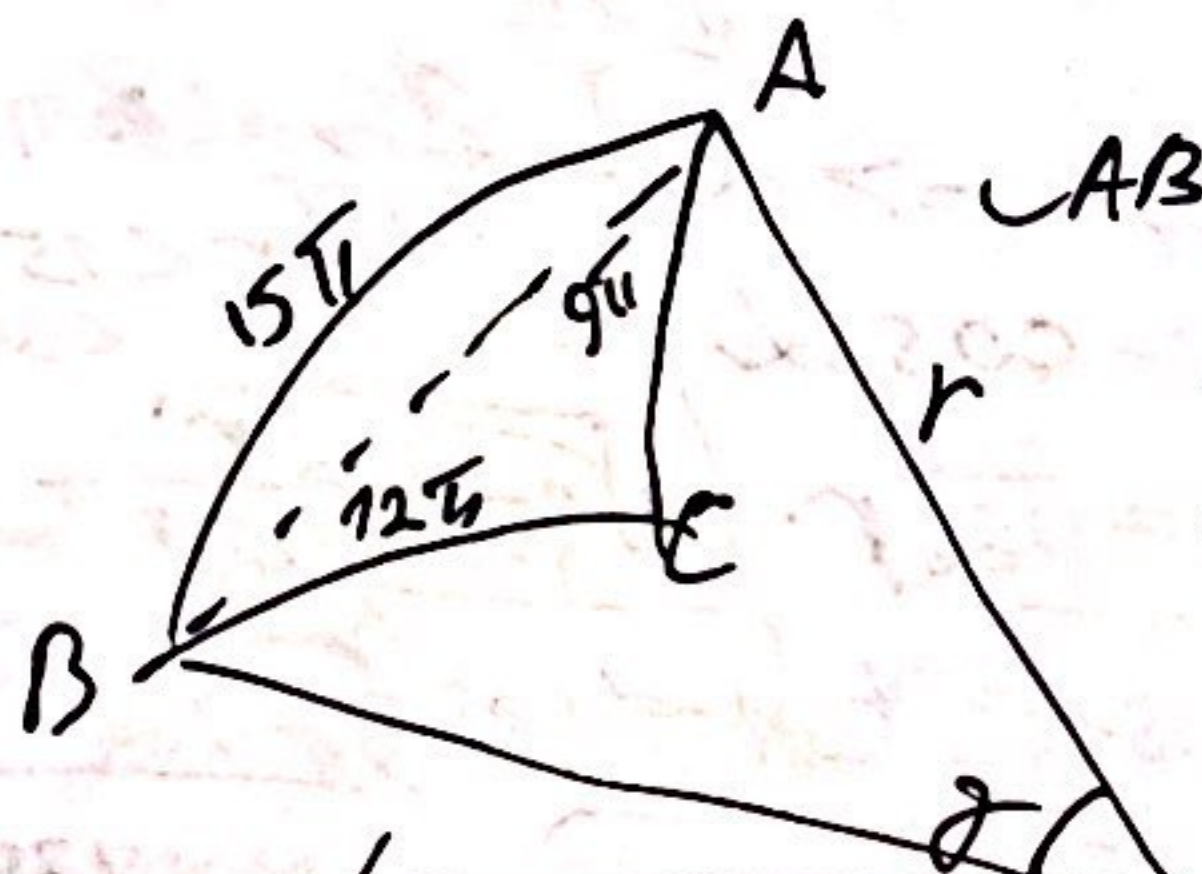 A
◡AB
15π
9π
r
12π
C
B
γ